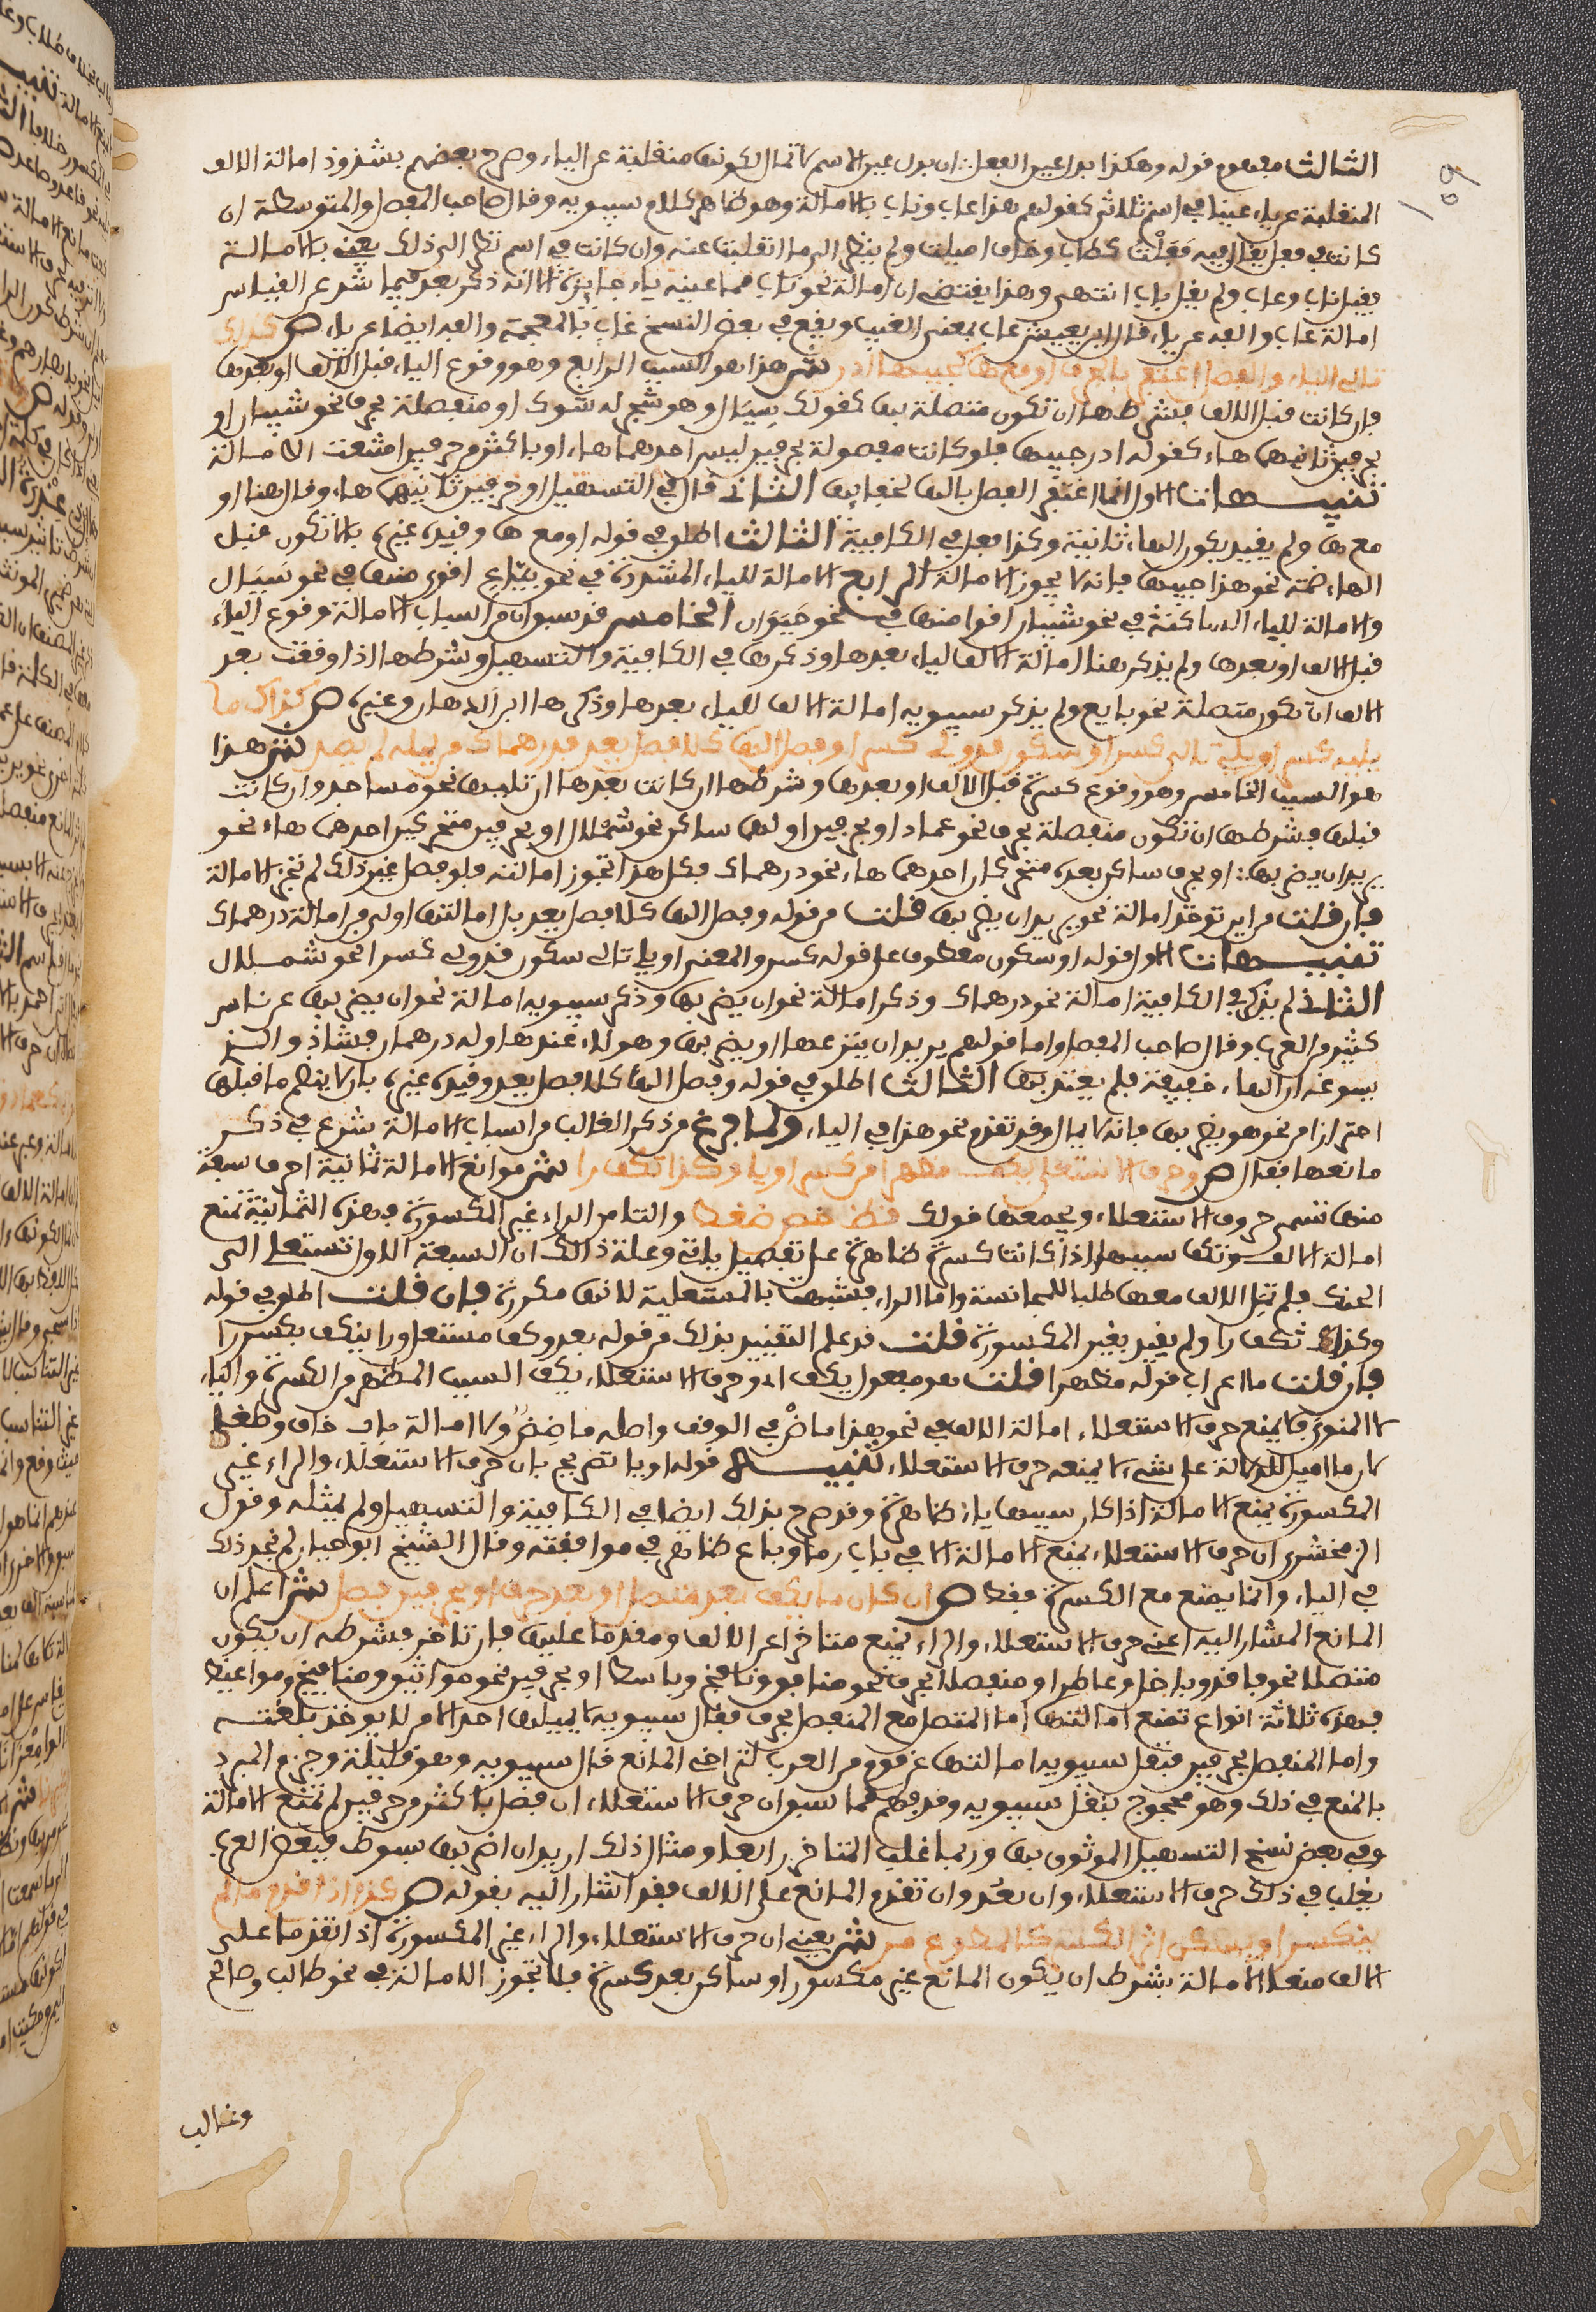 الثالث مفهوم قوله وهكذا بدل عين الفعل ان بدل عين الاسم لا تمال لكونها منقلبة عن الياء وصرح بعضهم بشذوذ امالة الالف
المنقلبة عن ياء عينا في اسم ثلاثي كقولهم هذا عاب وناب بالامالة وهو ظاهر كلام سيبويه وقال صاحب المفصل والمتوسطة ان
كانت في فعل يقال فيه فعلت كطاب وخاف اميلت ولم ينظر الى ما انقلبت عنه وان كانت في اسم نظر الى ذلك يعني بالامالة
فقيل ناب وعاب ولم يقل باب انتهى وهذا يقتضي ان امالة نحو ناب مما عينه ياء جايزة الا انه ذكر بعد فيما شذ عن القياس
امالة عاب والفه عن ياء قال ابن يعيش عاب بمعنى العيب ويقع في بعض النسخ غاب بالمعجمة والفه ايضا عن ياء ص كذاك
تالي الياء والفصل اغتفر بحرف او مع ها كجيبها ادر ش هذا هو السبب الرابع وهو وقوع الياء قبل الالف او بعدها
فان كانت قبل الالف فشرطها ان تكون متصلة بها كقولك سيال وهو شجر له شوك او منفصلة بحرف نحو شيبان او
بحرفين ثانيهما هاء كقوله ادر جيبها فلو كانت مفصولة بحرفين ليس احدهما هاء او باكثر من حرفين امتنعت الامالة
تنبيهات الاول انما اغتفر الفصل بالها لخفائها الثاني قال في التسهيل او حرفين ثانيهما هاء وقال هنا او
مع ها ولم يقيد بكون الهاء ثانية وكذا فعل في الكافية الثالث اطلق في قوله او مع ها وقيده غيره بالا تكون قبل
الهاء ضمة نحو هذا جيبها فانه لا يجوز الامالة الرابع الامالة للياء المشددة في نحو بياع اقوى منها في نحو سيال
والامالة للياء الساكنة في نحو شيبان اقوا منها في نحو حيوان الخامس قد سبق ان من اسباب الامالة وقوع الياء
قبل الالف او بعدها ولم يذكر هنا امالة الالف لياء بعدها وذكرها في الكافية والتسهيل وشرطها اذا وقعت بعد
الالف ان تكون متصلة نحو بايع ولم يذكر سيبويه امالة الالف للياء بعدها وذكرها ابن الدهان وغيره ص كذاك ما
يليه كسر او يلي تالي كسر او سكون قد ولي كسرا وفصل الها كلا فصل يعد فدرهماك من يمله لم يصد ش هذا
هو السبب الخامس وهو وقوع كسرة قبل الالف او بعدها وشرطها ان كانت بعدها ان تليها نحو مساجد وان كانت
قبلها فشرطها ان تكون منفصلة بحرف نحو عماد او بحرفين اولهما ساكن نحو شملال او بحرفين متحركين احدهما هاء نحو
يريد ان يضربها او بحرف ساكن بعده متحركان احدهما هاء نحو درهماك فكل هذا تجوز امالته فلو فصل غير ذلك لم تجز الامالة
فان قلت من اين توخذ امالة نحو يريد ان يضربها قلت من قوله وفصل الها كلا فصل يعد بل امالتها اولى من امالة درهماك
تنبيهات الاول قوله او سكون معطوف على قوله كسر والمعنى او يلي تالي سكون قد ولي كسرا نحو شملال
الثاني لم يذكر في الكافية امالة نحو درهماك وذكر امالة نحو ان يضربها وذكر سيبويه امالة نحو ان يضربها عن ناس
كثير من العرب وقال صاحب المفصل واما قولهم يريد ان ينزعها او يضربها وهو له عندها وله درهمان فشاذ والذي
سوغه ان الهاء خفيفة فلم يعتد بها الثالث اطلق في قوله وفصل الها كلا فصل يعد وقيده غيره بان لا ينضم ما قبلها
احترازا من نحو هو يضربها فانه لا يمال وقد تقدم نحو هذا في الياء ولما فرغ من ذكر الغالب من اسباب الامالة شرع في ذكر
مانعها فقال ص وحرف الاستعلا يكف مظهرا من كسر او يا وكذا تكف را ش موانع الامالة ثمانية احرف سبعة
منها تسمى حروف الاستعلاء ويجمعها قولك قظ خص ضغط والثامن الراء غير المكسورة فهذه الثمانية تمنع
امالة الالف وتكف سببها اذا كانت كسرة ظاهرة على تفصيل ياتي وعلة ذلك ان السبعة الاول تستعلي الى
الحنك فلم تمل الالف معها طلبا للمجانسة واما الراء فشبهت بالمستعلية لانها مكررة فان قلت اطلق في قوله
وكذلك تكف را ولم يقيد بغير المكسورة قلت قد علم التقييد بذلك من قوله بعد وكف مستعل ورا ينكف بكسر را
فان قلت ما اعراب قوله مظهرا قلت هو مفعول يكف اي وحرف الاستعلاء يكف السبب المظهر من الكسرة والياء
لا المنوي فلا يمنع حرف الاستعلاء امالة الالف في نحو هذا ماض في الوقف واصله ماضض ولا امالة باب خاف وطغى
لان ما اميل للدلالة على شيء لا يمنعه حرف الاستعلاء تنبيه قوله او يا تصريح بان حرف الاستعلاء والراء غير
المكسورة يمنع الامالة اذا كان سببها ياء ظاهرة وقد صرح بذلك ايضا في الكافية والتسهيل ولم يمثله وقول
الزمخشري ان حرف الاستعلاء يمنع الامالة الا في باب رما وباع ظاهر في موافقته وقال الشيخ ابو حيان لم نجد ذلك
في الياء وانما يمنع مع الكسرة فقط ص ان كان ما يكف بعد متصل او بعد حرف او بحرفين فصل ش اعلم ان
المانع المشار اليه اعني حرف الاستعلاء والراء يمنع متاخرا عن الالف ومقدما عليها فان تاخر فشرطه ان يكون
متصلا نحو فاقد وباخل وعاطر او منفصلا بحرف نحو منافق ونافخ وباسط او بحرفين نحو مواثيق ومنافيخ ومواعيظ
فهذه ثلاثة انواع تمنع امالتها اما المتصل مع المنفصل بحرف فقال سيبويه لا يميلها احد الا من لا يوخذ بلغته
واما المنفصل بحرفين فنقل سيبويه امالتها عن قوم من العرب لتراخي المانع قال سيبويه وهو قليلة وجزم المبرد
بالمنع في ذلك وهو محجوج بنقل سيبويه وقد فهم مما سبق ان حرف الاستعلاء ان فصل باكثر من حرفين لم تمنع الامالة
وفي بعض نسخ التسهيل الموثوق بها وربما غلب المتاخر رابعا ومثال ذلك اريد ان اضربها بسوط فبعض العرب
يغلب في ذلك حرف الاستعلاء وان بعد وان تقدم المانع على الالف فقد اشار اليه بقوله ص كذا اذا قدم ما لم
ينكسر او يسكن اثر الكسر كالمطواع مر ش يعني ان حرف الاستعلاء والراء غير المكسورة اذا تقدما على
الالف منعا الامالة بشرط ان يكون المانع غير مكسور او ساكن بعد كسرة فلا تجوز الامالة في نحو طالب وصالح
وغالب